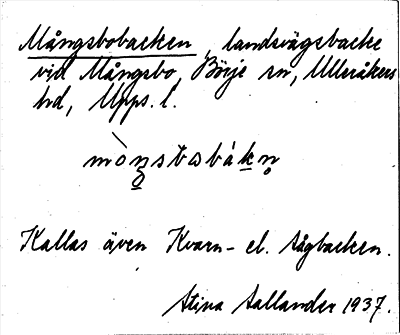 Mångsbobacken, landsvägsbacke
vid Mångsbo, Börje sn, Ulleråkers
hd, Upps. l.
mòn̥stsbákn̥
Kallas även Kvarn- el. Sågbacken.
Stina Sallander 1937.